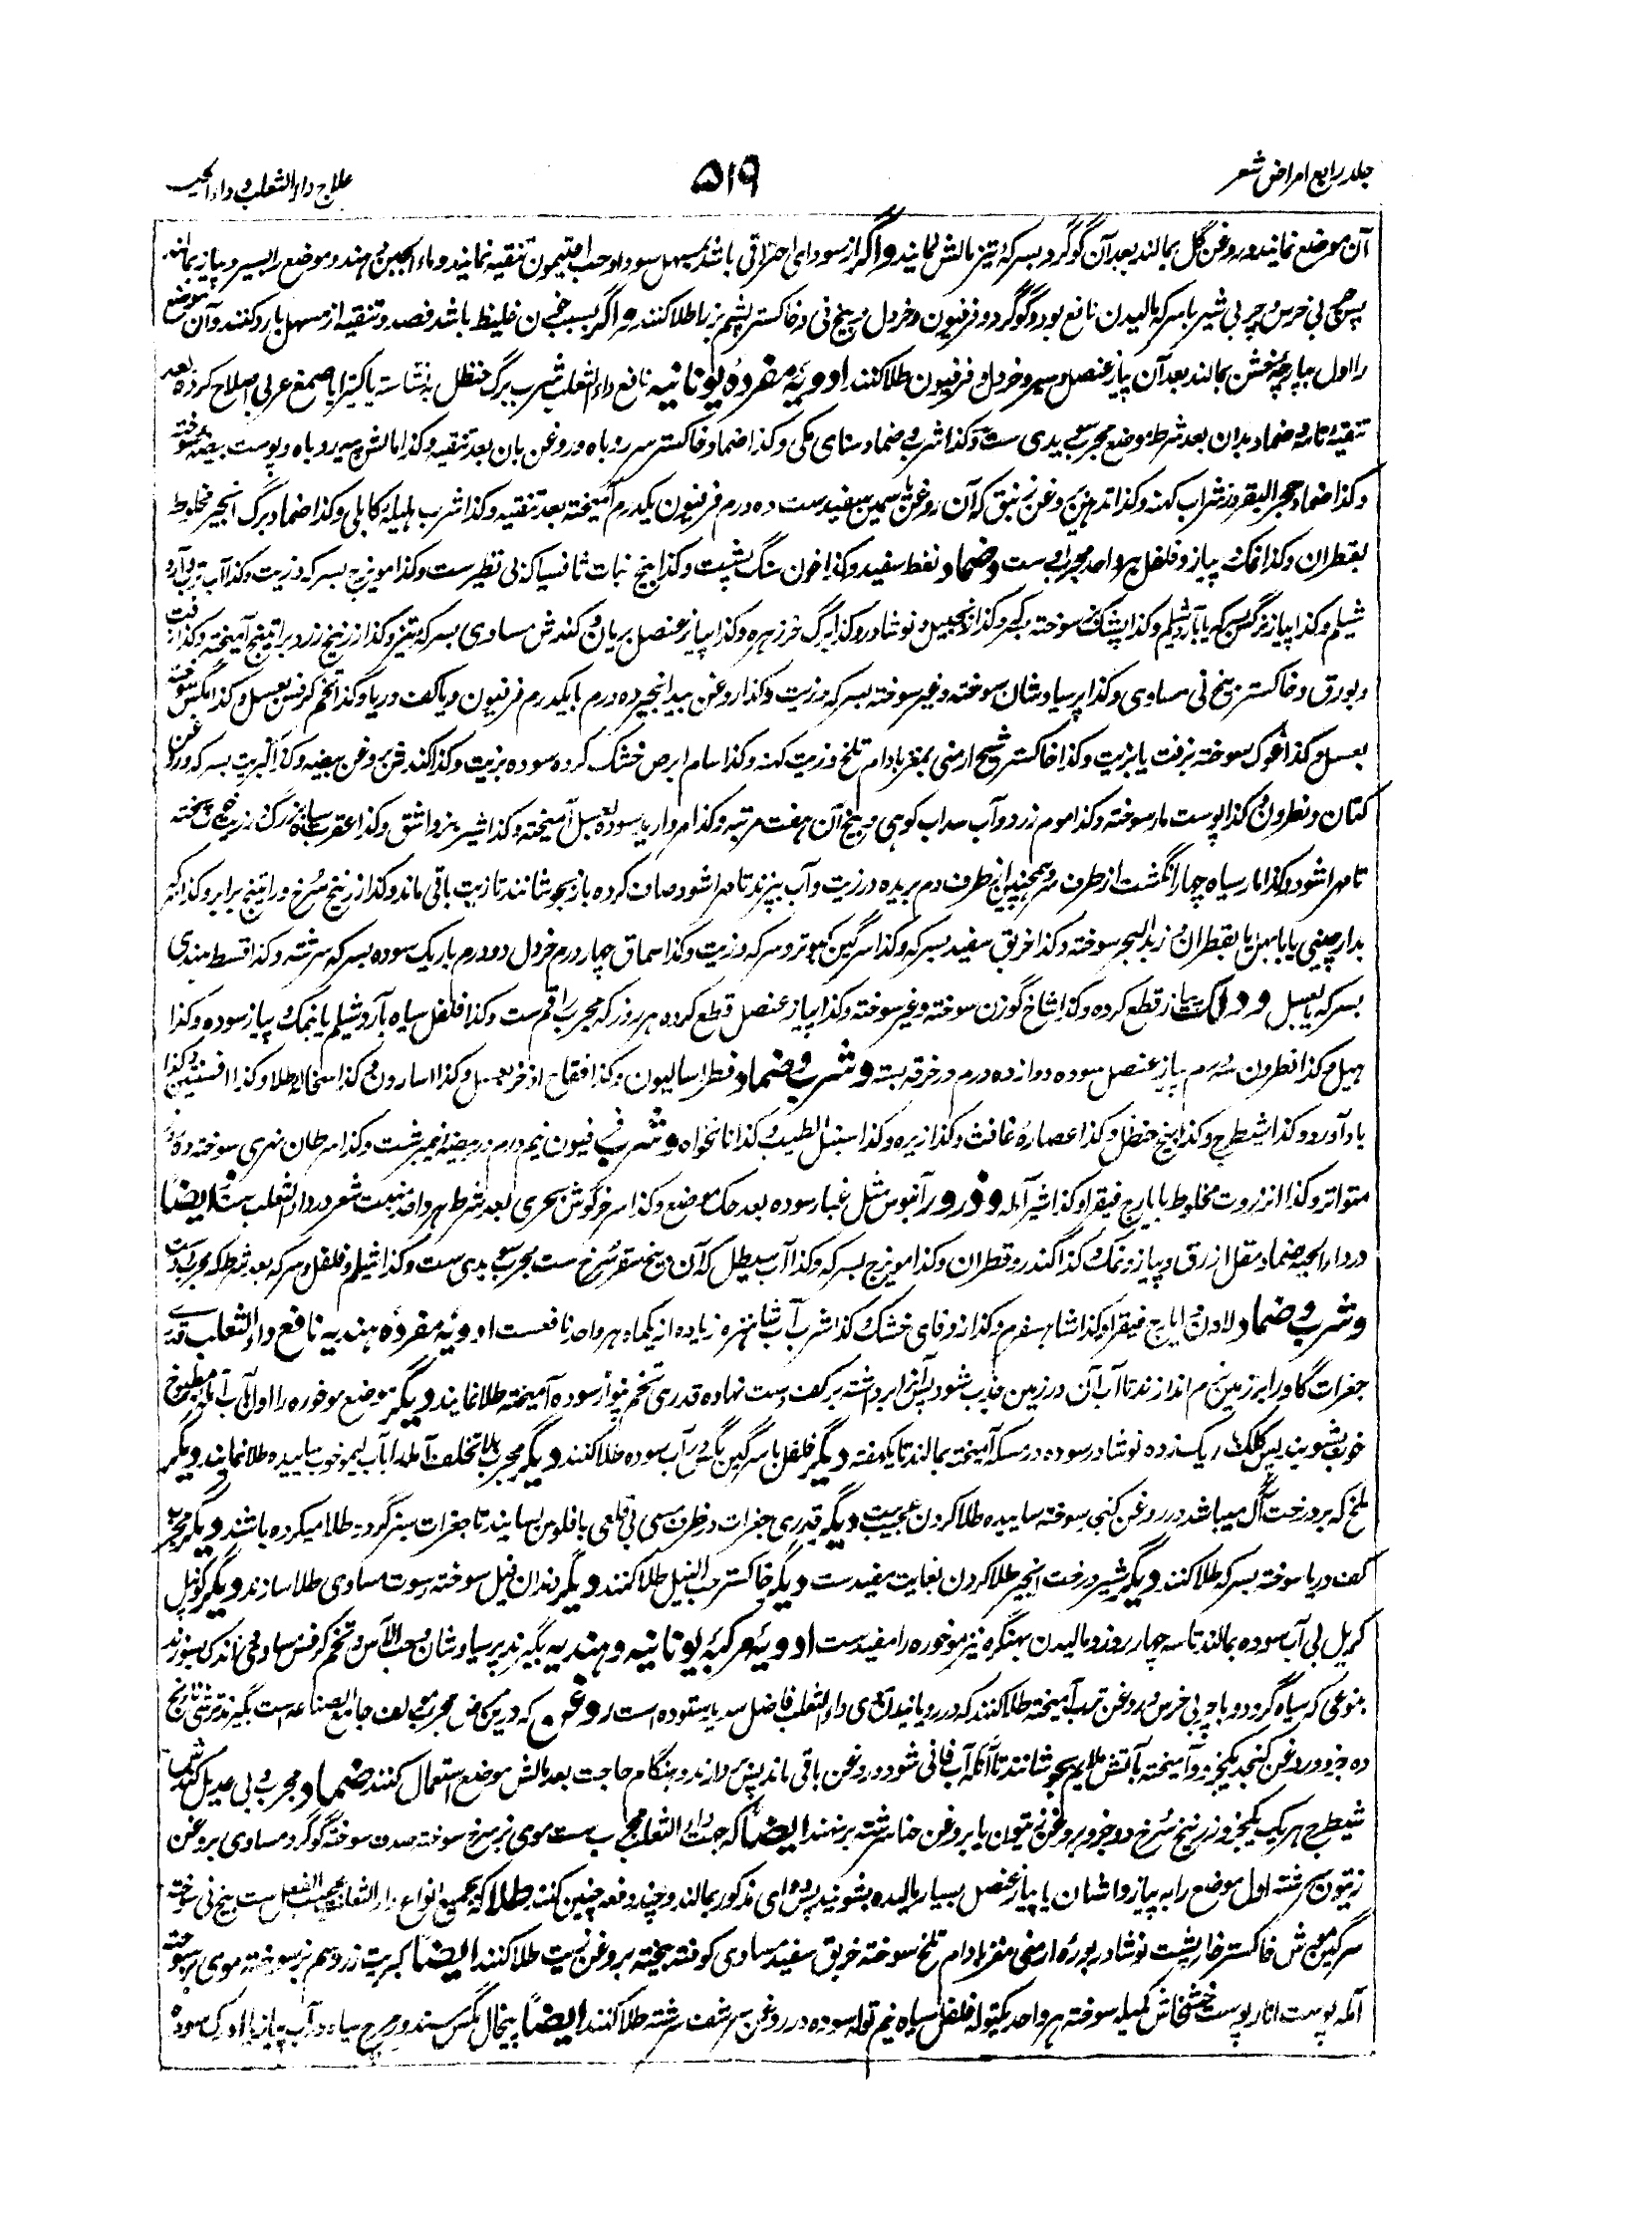 جلد رابع امراض شعر
۵۱۹
علاج داء الثعلب و داء الحیه
آن موضع نمایند و روغن گل بمالند بعد آن گوگرد بسرکه تیز مالش نمایند و اگر از سودای احتراقی باشد بمسهل سودا و حب افتیمون تنقیه نمایند و ماء الجبن دهند و موضع را بسیر و پیاز بمالند
پس چربی خرس و چربی شیر با سرکه مالیدن نافع بود و گوگرد و فرفیون و خردل و بیخ نی و خاکستر پشم بز با طلا کنند و اگر بسبب خون غلیظ باشد فصد و تنقیه از مسهل بارد کنند و آن موضع
را اول بپارچه خشن بمالند بعد آن پیاز عنصل و سیر و خردل و فرفیون طلا کنند ادویهٔ مفردهٔ یونانیه نافع داء الثعلب شرب برگ حنظل به نشاسته یا کتیرا یا صمغ عربی اصلاح کرده بعد
تنقیه تامه و ضماد بدان بعد شرط موضع مجرب سویدی ست و کذا شرب و ضماد سنای مکی و کذا ضماد خاکستر سر روباه و روغن بان بعد تنقیه و کذا مالش پیه روباه و پوست بیضه سوخته
و کذا ضماد حجر البقر در شراب کهنه و کذا تدهین روغن زنبق که آن روغن یاسمین سفیدست ده درم فرفیون یکدرم آمیخته بعد تنقیه و کذا شرب هلیله کابلی و کذا ضماد برگ انجیر مخلوط
بقطران و کذا نمک پیاز و فلفل هر واحد مجرب ست و ضماد نفط سفید و کذا خون سنگ پشت و کذا بیخ نبات ثافسیا که بی نظیرست و کذا مویزج بسرکه و زیت و کذا آب ترب و آرد
شیلم و کذا پیاز نرگس بسرکه یا بآرد شیلم و کذا پشک بز سوخته بسرکه و کذا زنجبیل و نوشادر و کذا برگ خرزهره و کذا پیاز عنصل بریان و کندش مساوی بسرکه تیز و کذا زرنیخ زرد براتینج آمیخته و کذا زفت
و بورق و خاکستر بیخ نی مساوی و کذا پرسیاوشان سوخته و غیر سوخته بسرکه و زیت و کذا روغن بیدانجیر ده درم با یکدرم فرفیون و یا کف دریا و کذا تخم کرفس بعسل و کذا مگس سوخته
بعسل و کذا غوک سوخته بزفت یا بزیت و کذا خاکستر شیح ارمنی بمغز بادام تلخ و زیت کهنه و کذا سام ابرص خشک کرده سوده بزیت و کذا کندش بروغن بیضه و کذا کبریت بسرکه و روغن
کتان و نطرون و کذا پوست مار سوخته و کذا موم زرد و آب سداب کوهی و بیخ آن هفت مرتبه و کذا مروارید سوده بعسل آمیخته و کذا شیر بز و اشق و کذا عقرب سیاه بزرگ در زیت پخته
تا مهرا شود و کذا مار سیاه چهار انگشت از طرف سر و همچندان از طرف دم بریده در زیت و آب بپزند تا مهرا شود صاف کرده باز بجوشانند تا زیت باقی ماند و کذا زرنیخ سرخ و راتینج برابر و کذا
بدارچینی یا با بهل یا بقطران و زبد البحر سوخته و کذا خربق سفید بسرکه و کذا سرگین کبوتر و سرکه و زیت و کذا سماق چهار درم خردل دو درم باریک سوده بسرکه سرشته و کذا قسط هندی
بسرکه یا بعسل و دلک پیاز قطع کرده و کذا شاخ گوزن سوخته و غیر سوخته و کذا پیاز عنصل قطع کرده هر روز که مجرب راقم ست و کذا فلفل سیاه بآرد شیلم یا نمک پیاز سوده و کذا
هیل و کذا نطرون سه درم پیاز عنصل سوده دوازده درم در خرقه بسته و شرب و ضماد فطراسالیون و کذا فقاح اذخر بعسل و کذا اسارون و کذا سخاله طلا و کذا افسنتین و کذا
بادآورد و کذا شیطرج و کذا بیخ حنظل و کذا عصاره غافث و کذا زیره و کذا سنبل الطیب و کذا نانخواه و شرب فرفیون نیم درم در بیضه نیمبرشت و کذا سرطان نهری سوخته ده روز
متواتر و کذا انزروت مخلوط بایارج فیقرا و کذا شیر آمله و ذرور آبنوس مثل غبار سوده بعد حک موضع و کذا سر خرگوش بحری بعد شرط هر واحد منبت شعر در داء الثعلب ست ایضاً
در داء الحیه ضماد مقل ازرق و پیاز و نمک و کذا کندر و قطران و کذا مویزج بسرکه و کذا آب سیطل که آن بیخ سقر سرخ ست مجرب سویدی ست و کذا شیلم و فلفل و سرکه بعد شرط که مجرب ست
و شرب و ضماد لادن و ایارج فیقرا و کذا شاهسفرم و کذا زوفای خشک و کذا شرب آب شاهتره زیاده از یکماه هر واحد نافعست ادویهٔ مفردهٔ هندیه نافع داء الثعلب قدری
جغرات گاو را بر زمین نرم اندازند تا آب آن در زمین جذب شود پس آنرا برداشته بر کف دست نهاده قدری تخم پنواز سوده آمیخته طلا نمایند دیگر موضع موخوره را اول بآب مطبوخ
خوب بشویند پس کلک ریک زده نوشادر سوده در مسکه آمیخته بمالند تا یکهفته دیگر فلفل با سرگین بگس در آب سوده طلا کنند دیگر مجرب بلا تخلف آمله را بآب لیمو خوب سائیده طلا نمایند دیگر
ملخ که بر درخت آک میباشد در روغن کنجد سوخته سائیده طلا کردن عجیب ست دیگر قدری جغرات در ظرف مسی بی قلعی با فلوس بسایند تا جغرات سبز گردد طلا میکرده باشند دیگر مجرب
کف دریا سوخته بسرکه طلا کنند دیگر شیر درخت انجیر طلا کردن بغایت مفیدست دیگر خاکستر حب النیل طلا کنند دیگر دندان فیل سوخته رسوت مساوی طلا سازند دیگر کونپل
کریل بی آب سوده بمالند تا سه چهار روز و مالیدن بهنگره نیز موخوره را مفیدست ادویهٔ مرکبهٔ یونانیه و هندیه بگیرند پرسیاوشان و حب الآس و تخم کرفس مساوی اندک بسوزند
بنوعی که سیاه گردد و با چربی خرس و روغن ترب آمیخته طلا کنند که در رویانیدن موی داء الثعلب فاضل سدید ستوده است روغن که درین مرض مجرب مولف جامع الصناعه است بگیرند ترشی نارنج
ده جزو و روغن کنجد یکجزو آمیخته بآتش ملایم بجوشانند تا آنکه آب فانی شود و روغن باقی ماند پس دارند و هنگام حاجت بعد مالش موضع استعمال کنند ضماد مجرب و بی عدیل کندش
شیطرج هر یک یکجزو زرنیخ سرخ دو جزو بروغن زیتون یا بروغن حنا سرشته برنهند ایضاً که جهت داء الثعلب مجرب ست موی بز سرخ سوخته صدف سوخته گوگرد مساوی بروغن
زیتون سرشته اول موضع را به پیاز و اشنان یا پیاز عنصل بسیار مالیده بشویند پس دوای مذکور بمالند و چند دفعه چنین کنند طلا که بجمیع انواع داء الثعلب عجیب الفعل ست بیخ نی سوخته
سرگین موش خاکستر خارپشت نوشادر بوره ارمنی مغز بادام تلخ سوخته خربق سفید مساوی کوفته بیخته بروغن زیت طلا کنند ایضاً کبریت زرد سم بز سوخته موی بز سوخته
آمله پوست انار پوست خشخاش کمیله سوخته هر واحد یکتوله فلفل سیاه نیم توله سوده در روغن سرشف سرشته طلا کنند ایضاً پیخال مگس سندور مرچ سیاه در آب پیاز یا ادرک سوده